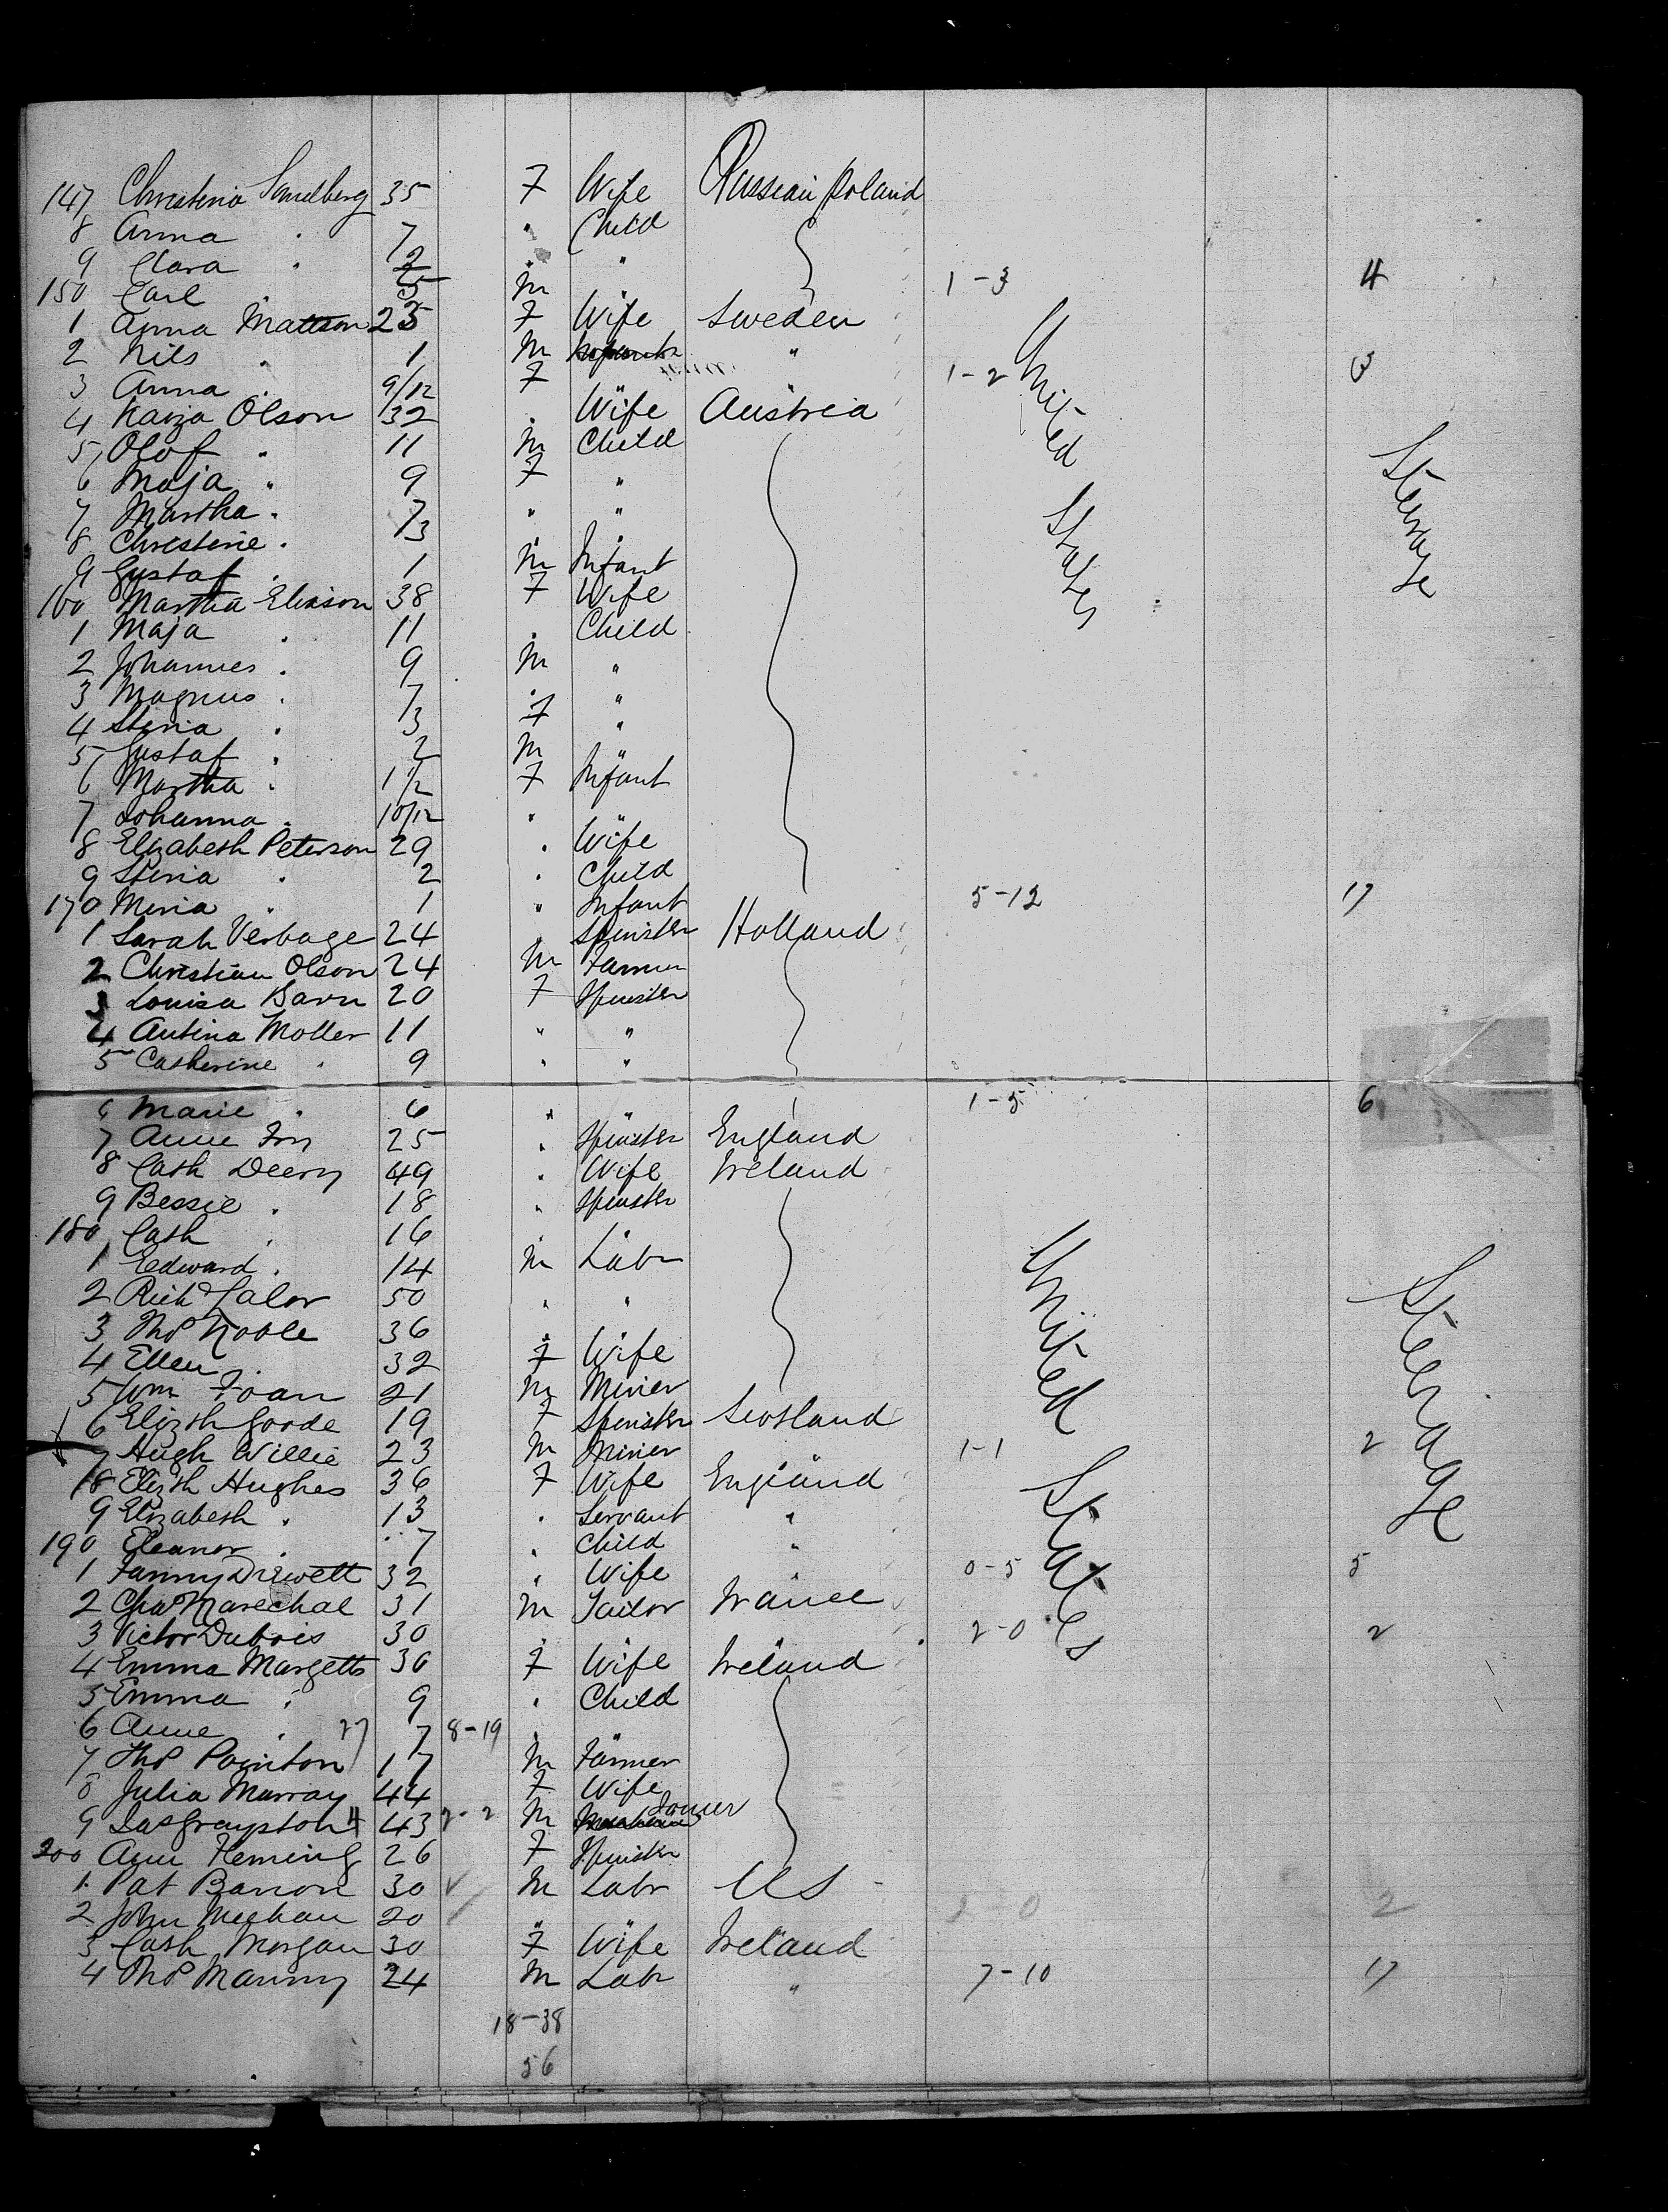 147 Christina Sandberg 35 F Wife Russian Poland
8 Anna " 7 " Child
9 Clara " 2 " "
150 Carl " 5 M " 1-3 4
1 Anna Mattson 25 F Wife Sweden
2 Nils " 1 M Infant "
3 Anna " 9/12 F " 1-2 3
4 Kaiza Olson 32 " Wife Austria
5 Olof " 11 M Child
6 Maja " 9 F "
7 Martha " 7 " "
8 Christine " 3 " "
9 Gustaf " 1 M Infant
160 Martha Eliason 38 F Wife
1 Maja " 11 " Child
2 Johannes " 9 M "
3 Magnus " 7 " "
4 Stina " 3 F "
5 Gustaf " 2 M "
6 Martha " 1 1/2 F Infant
7 Johanna " 10/12 " "
8 Elizabeth Peterson 29 " Wife
9 Stina " 2 " Child
170 Mina " 1 " Infant 5-12 17
1 Sarah Verbage 24 " Spinster Holland
2 Christian Olson 24 M Farmer
3 Louisa Barn 20 F Spinster
4 Antina Moller 11 " "
5 Catherine " 9 " "
6 Marie " 6 " " 1-5 6
7 Anne 25 " Spinster England
8 Cath Deery 49 " Wife Ireland
9 Bessie " 18 " Spinster
180 Cath " 16 " "
1 Edward " 14 M Labr
2 Richd Lalor 50 " "
3 Thos Noble 36 " "
4 Ellen " 32 F Wife
5 Wm Foan 21 M Miner
6 Elizth Goode 19 F Spinster Scotland
7 Hugh Willie 23 M Miner 1-1 2
8 Elizth Hughes 36 F Wife England
9 Elizabeth " 13 " Servant "
190 Eleanor " 7 " Child "
1 Fanny Drewett 32 " Wife 0-5 5
2 Chas Marechal 31 M Tailor France
3 Victor Dubois 30 " " 2-0 2
4 Emma Margetts 30 F Wife Ireland
5 Emma " 9 " Child
6 Anne " 27 7 8-19 " "
7 Thos Pointon 17 M Farmer
8 Julia Murray 44 F Wife
9 Jas Grayston 4 43 2-2 M Joiner
200 Ann Fleming 26 F Spinster
1 Pat Barron 30 M Labr US
2 John Meehan 20 " " 2 0 2
3 Cath Morgan 30 F Wife Ireland
4 Thos Manny 24 M Labr " 7-10 17
18-38
56
United States
Steerage
United States
Steerage